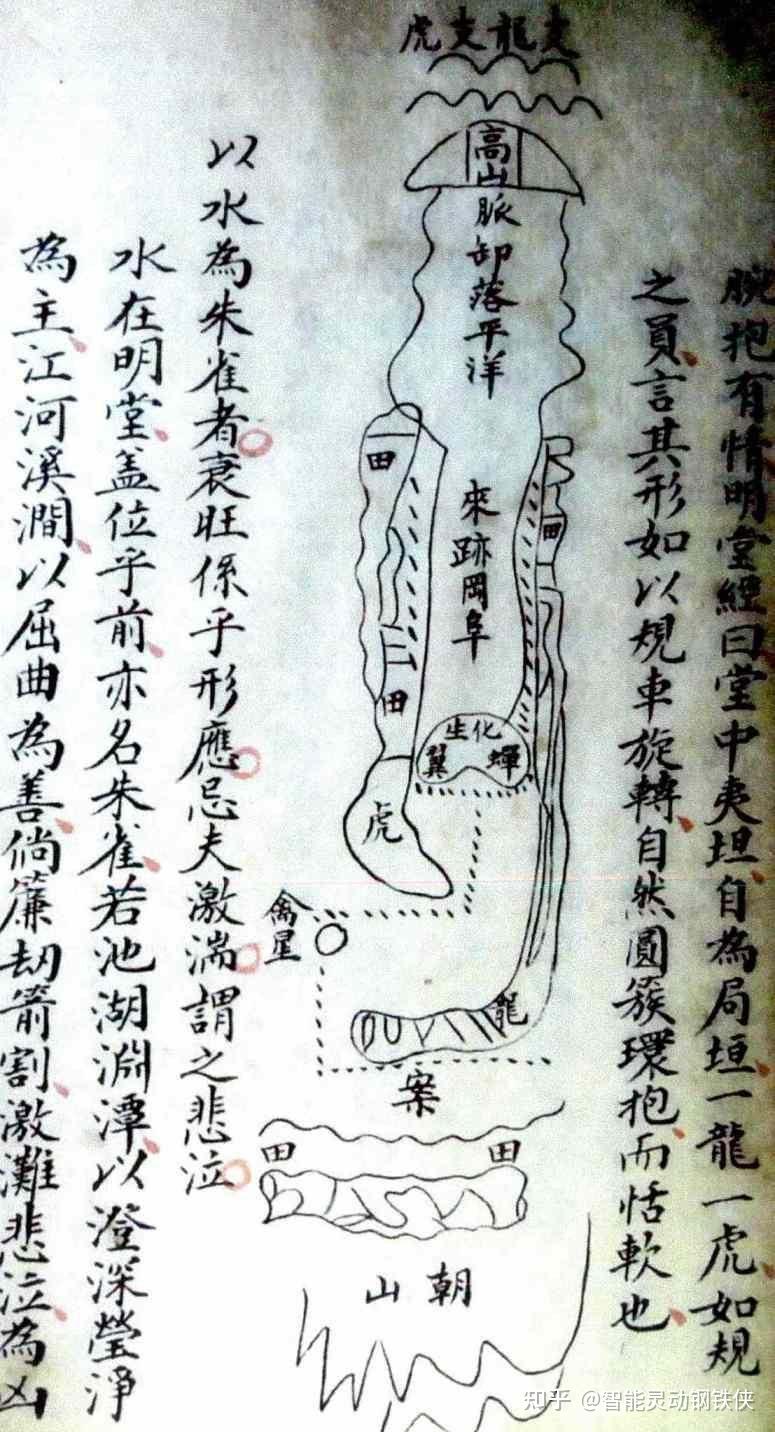 腕抱有情明堂經曰堂中夷坦自為局垣一龍一虎如規
之員言其形如以規車旋轉自然圓簇環抱而恬軟也
虎支龍支
高山
脈卸落平洋
來跡岡阜
田
田
二田
生化
翼
蟬
虎
禽星
龍
案
田
田
山朝
以水為朱雀者衰旺係乎形應忌夫激湍謂之悲泣
水在明堂盖位乎前亦名朱雀若池湖淵潭以澄深瑩淨
為主江河溪澗以屈曲為善倘簾劫箭割激灘悲泣為凶
知乎 @智能灵动钢铁侠